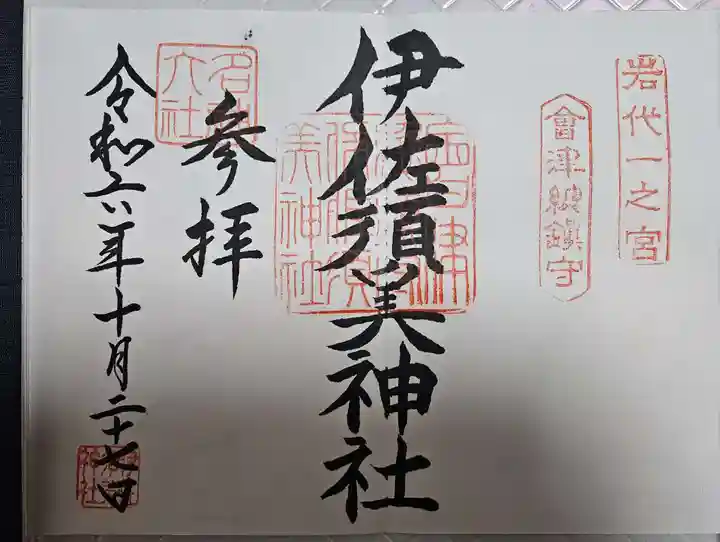 岩代一之宮
會津總鎮守
伊佐須美神社
參拝
名神
大社
令和六年十月二十七日